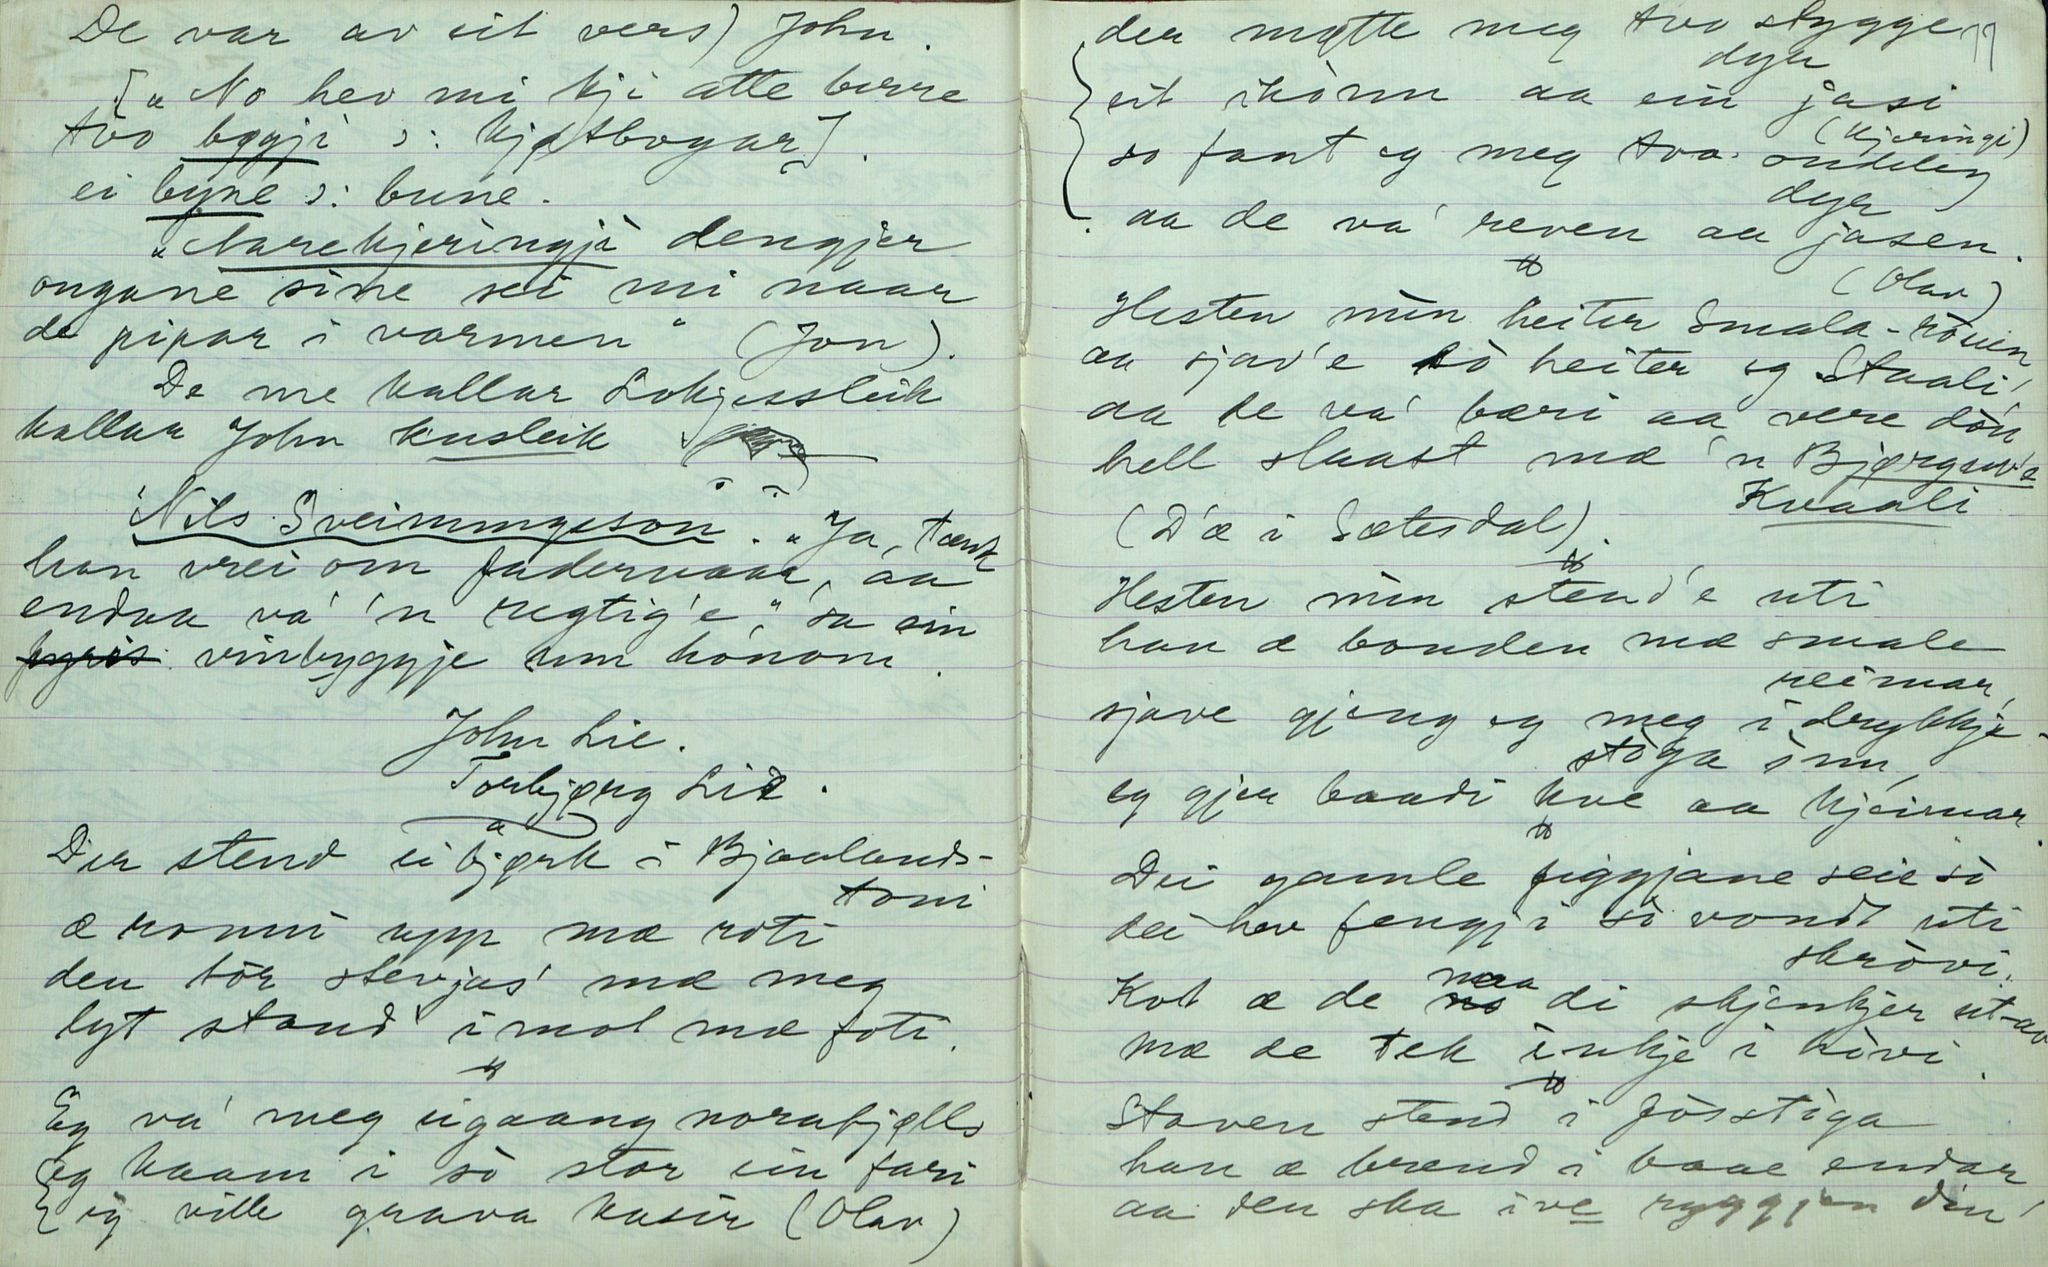 De var av eit vers) John.
[„No hev mi kji atte berre
tvo bøgji ɔ: kjøtbogar].
ei byne ɔ: bune.
„Narekjeringji dengjer
ongane sine sei mi naar
de pipar i varmen“ (Jon).
De me kallar Lokjessleik
kallar John kusleik
Nils Sveinungsson. „Ja, tænk
han vrei om fadervaar, aa
endaa va' 'n regtig'e“, sa ein
vinbyggje um honom.
John Lie.
Torbjørg Lie.
Der stend ei bjørk i Bjaalands-
toni
æ ronni upp mæ roti
den tòr stevjas' mæ meg
lyt stand' i mot mæ foti.
Eg va' meg eigaang norafjølls
eg kaam i sò stor ein fari
eg ville grava kasir (Olav)
der møtte meg tvo stygge 77
dyr
eit ikònn aa ein jasi
(kjeringi)
so fant eg meg tvo ondeleg
dyr
aa de va' reven aa jasen.
(Olav)
Hesten min heiter Smala-ròuen
aa sjav'e sò heiter eg Staali,
aa de va' bæri aa vere dòu
hell slaast mæ 'n Bjørguv's
Kvaali
(D'æ i Sætesdal).
Hesten min stend'e uti
han æ bonden mæ smale
reimar,
sjave gjeng eg meg i drykkje-
stòga inn,
eg gjer baadi kve aa kjeimar.
Dei gamle piggjane seie sò
dei hev fengji sò vondt uti
skròvi.
Kot æ de naa di skjenkjer ut-av
mæ de tek inkje i hòvi.
Staven stend i fòsstiga
han æ brend i baae endar
aa den ska ive ryggjen din